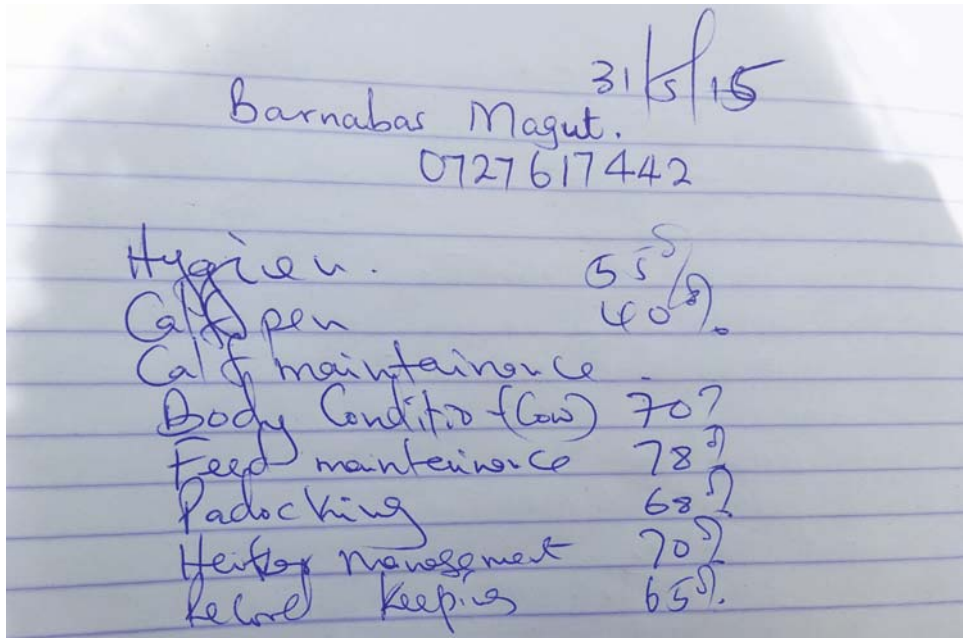 31/5/15
Barnabas Magut.
0727617442
Hygien.  55%
Calf pen  40%.
Calf maintainance -
Body Conditio (Cow) 70%
Feed maintainance 78%
Padocking 68%
Heifer management 70%
Record Keeping 65%.